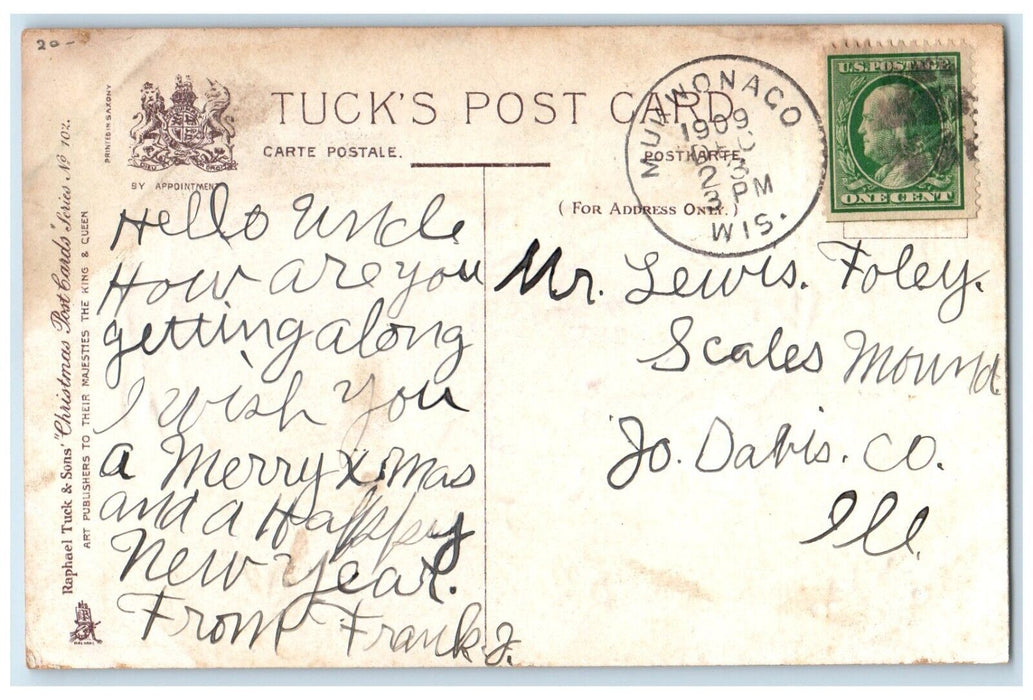 20-
TUCK'S POST CARD
CARTE POSTALE.
POSTKARTE.
BY APPOINTMENT
( FOR ADDRESS ONLY. )
PRINTED IN SAXONY
Raphael Tuck & Sons' "Christmas Post Cards" Series No 102.
ART PUBLISHERS TO THEIR MAJESTIES THE KING & QUEEN
MUKWONAGO
1909
DEC
23
3 PM
WIS.
U.S. POSTAGE
ONE CENT
Hello Uncle
How are you
getting along
I wish you
a Merry Xmas
and a Happy
New Year.
From Frank. F.
Mr. Lewis. Foley.
Scales Mound
Jo. Davis. Co.
Ill.